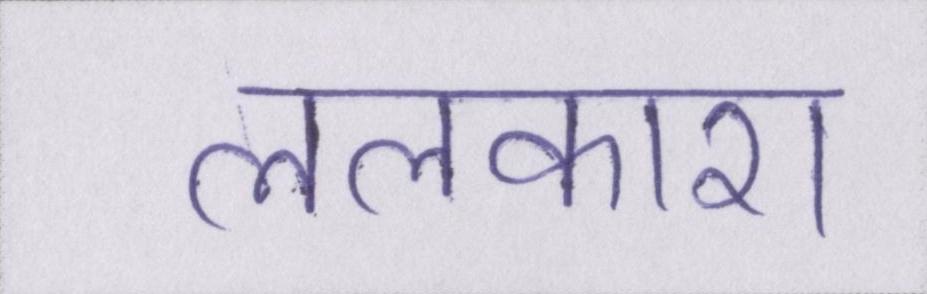 ललकारा